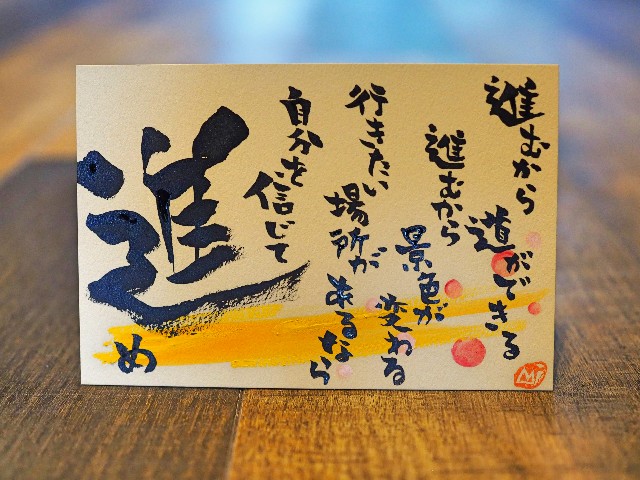 進むから
道ができる
進むから
景色が
変わる
行きたい
場所が
あるなら
自分を
信じて
進め